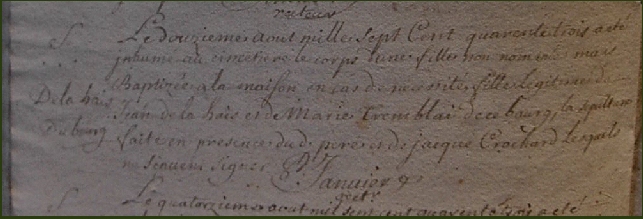 recteur
S Le douzieme aout mille sept Cent quarente trois a eté
inhumé au cimetiere le corps d'une fille non nommée mais
Baptizée a la maison en cas de necessité, fille Legitime de
De la hais Jean de la hais et de Marie Tremblai de ce bourg, la sepulture
Du bourg faite en presence dud. pere et de jacque Crochard Lesquels
ne scavent signer P. Janvier
rectr
S Le quatorzieme aout mil sept cent quarente trois a eté